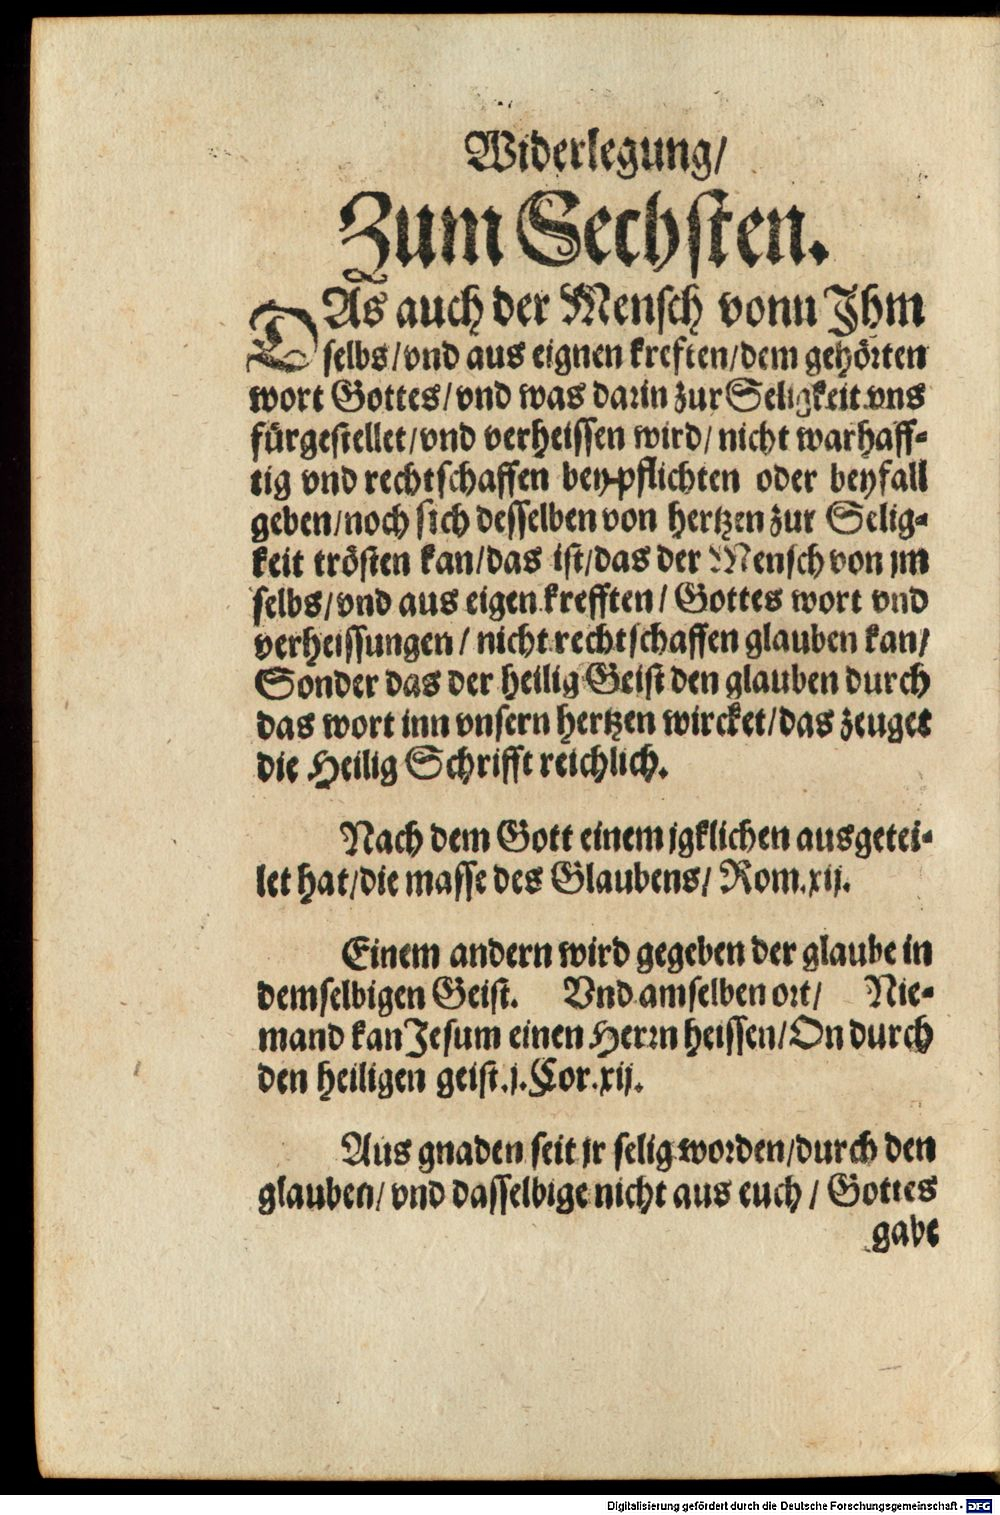 Widerlegung/
Zum Sechsten.
DAs auch der Mensch vonn Ihm
selbs/vnd aus eignen kreften/dem gehörten
wort Gottes/vnd was darin zur Seligkeit vns
fürgestellet/vnd verheissen wird/nicht warhaff-
tig vnd rechtschaffen bey-pflichten oder beyfall
geben/noch sich desselben von hertzen zur Selig-
keit trösten kan/das ist/das der Mensch von im
selbs/vnd aus eigen krefften/Gottes wort vnd
verheissungen/nicht rechtschaffen glauben kan/
Sonder das der heilig Geist den glauben durch
das wort inn vnsern hertzen wircket/das zeuget
die Heilig Schrifft reichlich.
Nach dem Gott einem jgklichen ausgetei-
let hat/die masse des Glaubens/Rom.xij.
Einem andern wird gegeben der glaube in
demselbigen Geist. Vnd am selben ort/ Nie-
mand kan Jesum einen Herrn heissen/On durch
den heiligen geist.j.Cor.xij.
Aus gnaden seit jr selig worden/durch den
glauben/vnd dasselbige nicht aus euch/Gottes
gabe
Digitalisierung gefördert durch die Deutsche Forschungsgemeinschaft - DFG